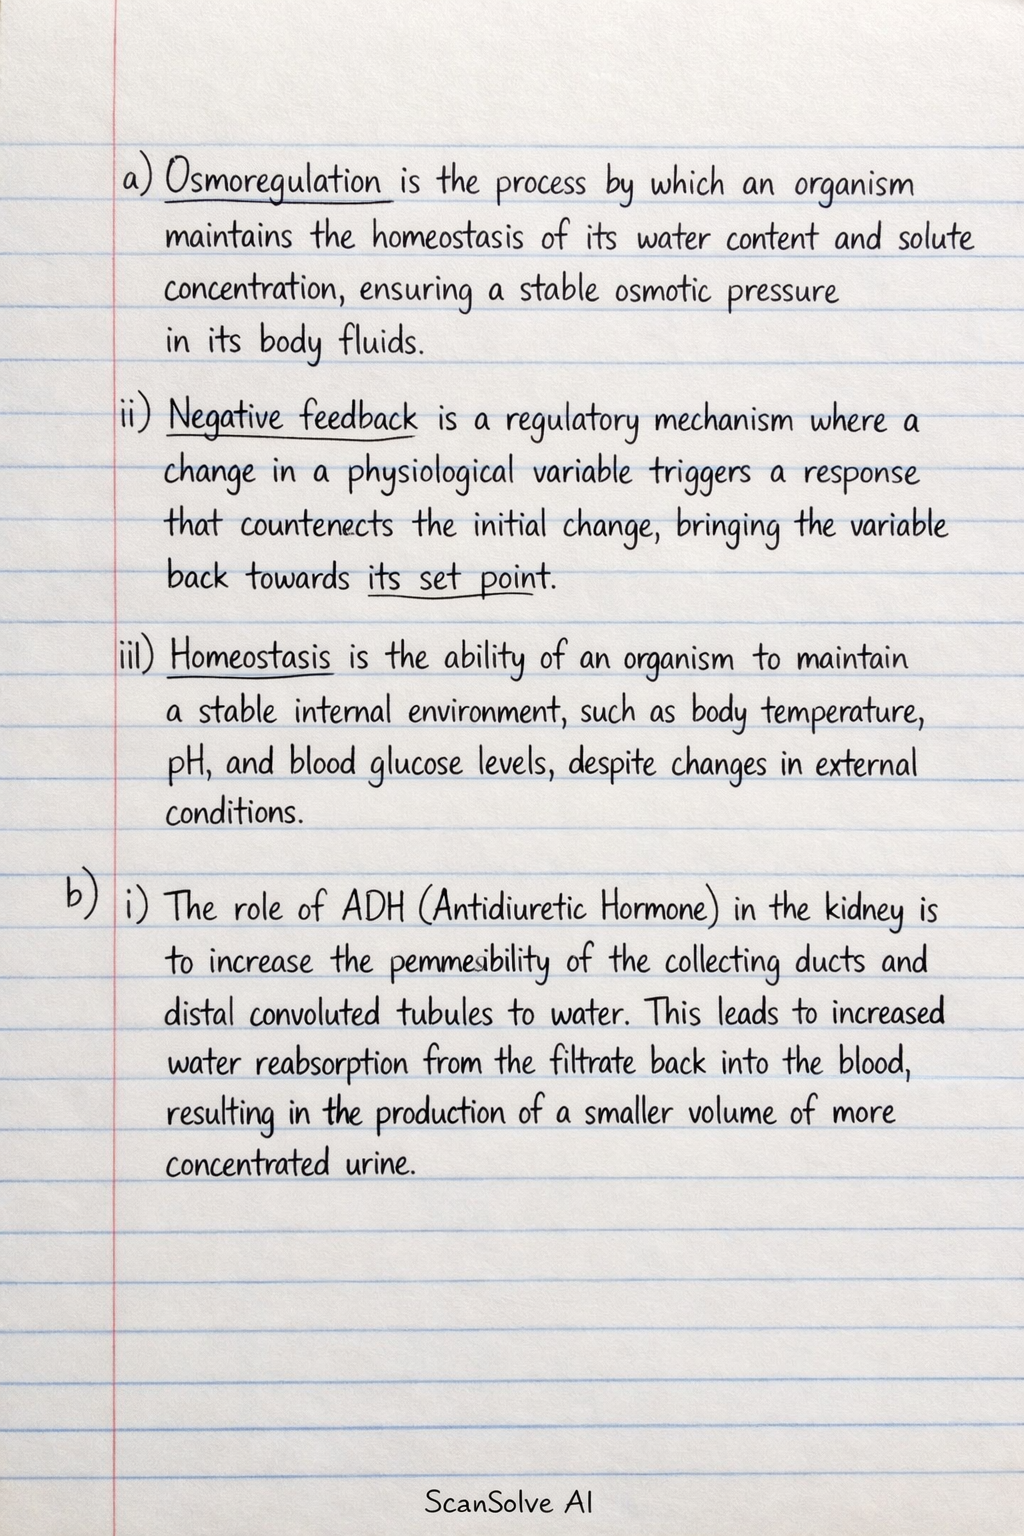 a) Osmoregulation is the process by which an organism
maintains the homeostasis of its water content and solute
concentration, ensuring a stable osmotic pressure
in its body fluids.
ii) Negative feedback is a regulatory mechanism where a
change in a physiological variable triggers a response
that countenects the initial change, bringing the variable
back towards its set point.
iil) Homeostasis is the ability of an organism to maintain
a stable internal environment, such as body temperature,
pH, and blood glucose levels, despite changes in external
conditions.
b) i) The role of ADH (Antidiuretic Hormone) in the kidney is
to increase the of the collecting ducts and
distal convoluted tubules to water. This leads to increased
water reabsorption from the filtrate back into the blood,
resulting in the production of a smaller volume of more
concentrated urine.
ScanSolve AI